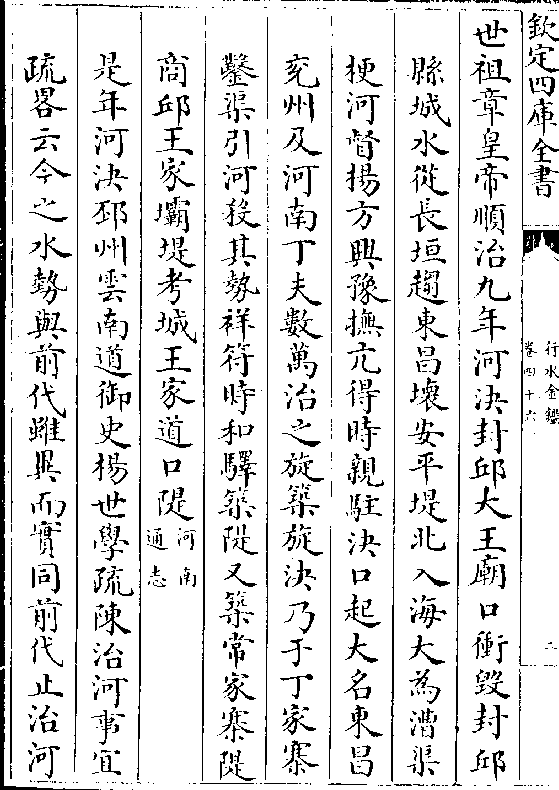 欽定四庫全書
行水金鑑
卷四十六
二
世祖章皇帝順治九年河決封邱大王廟口衝毀封邱
縣城水從長垣趨東昌壞安平堤北入海大為漕渠
梗河督楊方興豫撫亢得時親駐決口起大名東昌
兖州及河南丁夫數萬治之旋築旋決乃于丁家寨
鑿渠引河殺其勢祥符時和驛築隄又築常家寨隄
商邱王家壩堤考城王家道口隄河南
通志
是年河決邳州雲南道御史楊世學疏陳治河事宜
疏畧云今之水勢與前代雖異而實同前代止治河